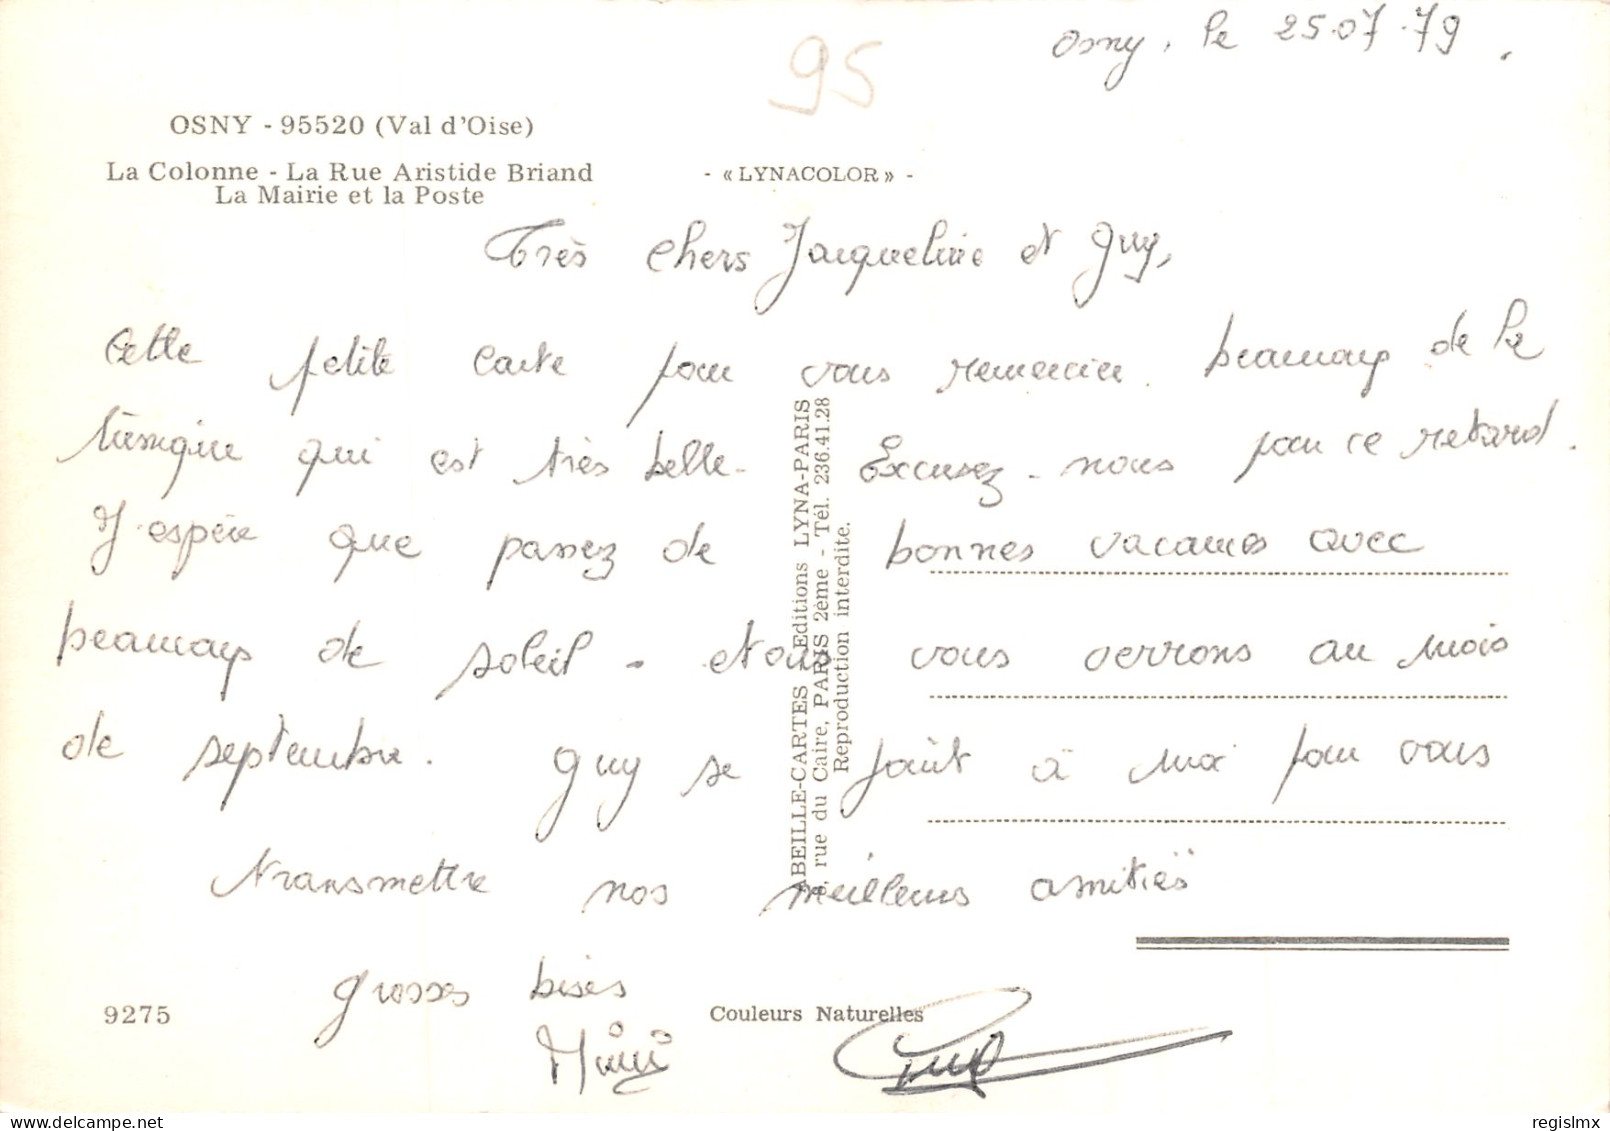 Osny, le 25.07.79.
95
OSNY - 95520 (Val d'Oise)
La Colonne - La Rue Aristide Briand
La Mairie et la Poste
- « LYNACOLOR » -
Très chers Jacqueline et Guy,
Cette petite carte pour vous remercier beaucoup de la
tunique qui est très belle. Excusez-nous pour ce retard.
J'espère que passez de bonnes vacances avec
beaucoup de soleil. Nous vous verrons au mois
de septembre. Guy se joint à moi pour vous
transmettre nos meilleurs amitiés
grosses bises
Mimi Guy
ABEILLE-CARTES - Editions LYNA-PARIS
8, rue du Caire, PARIS 2ème - Tél. 236.41.28
Reproduction interdite.
9275
Couleurs Naturelles
regislmx